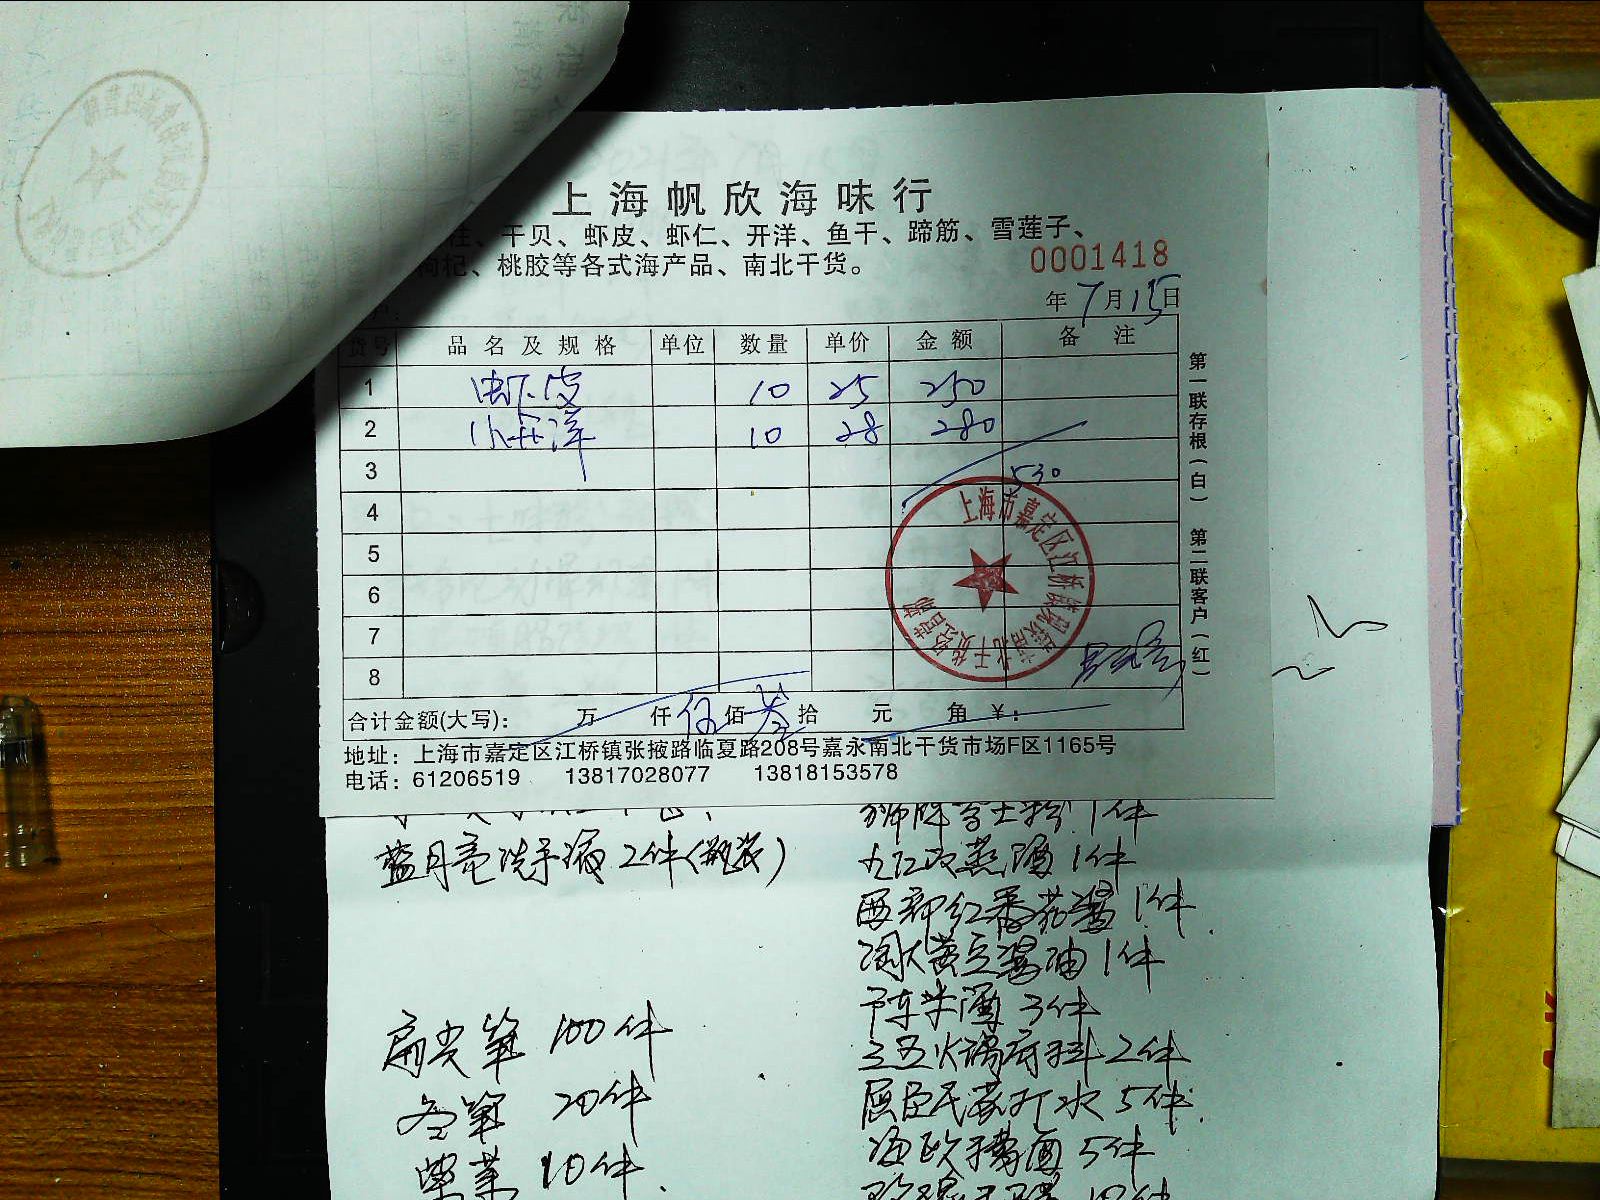 上海帆欣海味行
柱、干贝、虾皮、虾仁、开洋、鱼干、蹄筋、雪莲子、
枸杞、桃胶等各式海产品、南北干货。
0001418
年7月15日
货号 品名及规格 单位 数量 单价 金额 备注
1 虾皮 10 25 250
2 小开洋 10 28 280
3 530
4
5
6
7
8
合计金额(大写): 万 仟 伍佰叁拾 元 角 ¥:
地址: 上海市嘉定区江桥镇张掖路临夏路208号嘉永南北干货市场F区1165号
电话: 61206519 13817028077 13818153578
第一联存根(白) 第二联客户(红)
上海市嘉定区江桥镇帆欣南北干货经营部
蓝月亮洗手液 2件(瓶装)
扁尖笋 100件
冬笋 20件
紫菜 10件
1件
九江双蒸酒 1件
西部红番茄酱 1件
淘大黄豆酱油 1件
3件
2件
屈臣氏苏打水 5件
5件